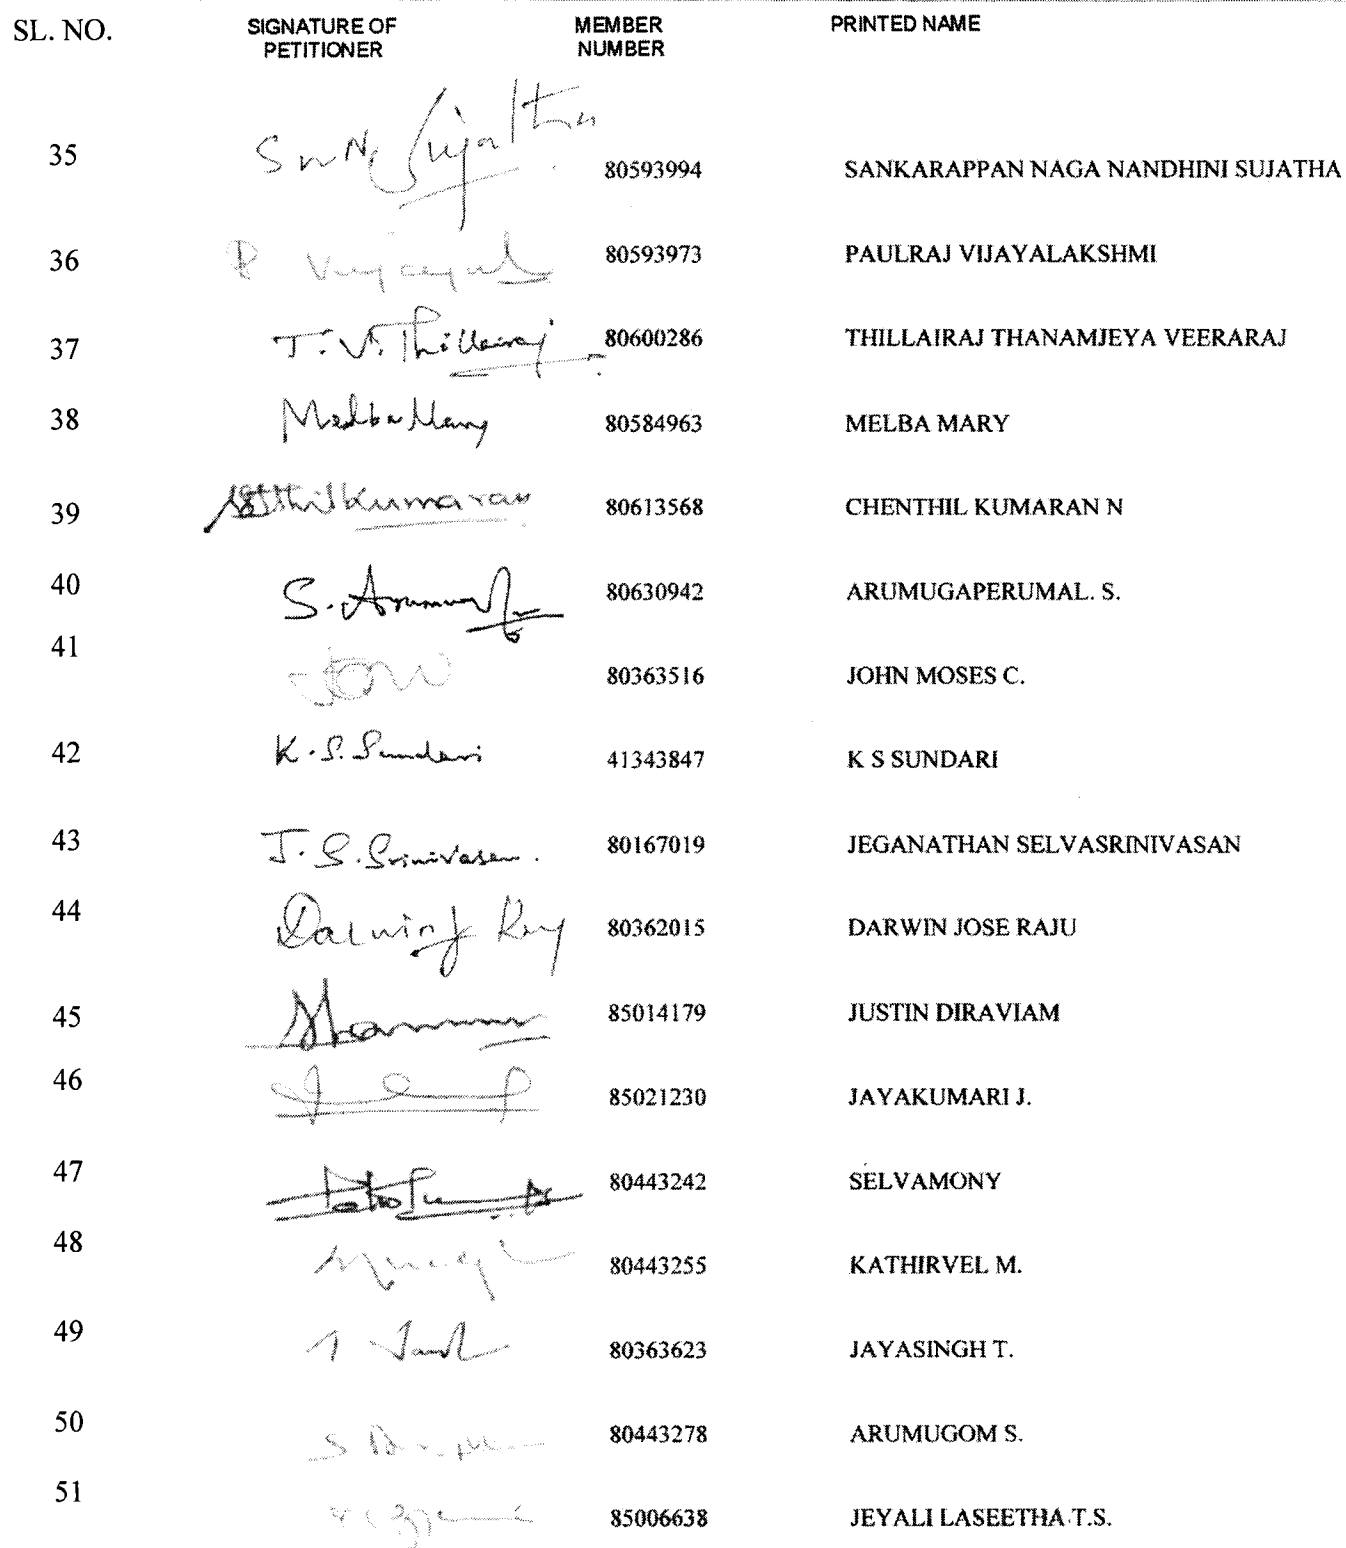 SL. NO. SIGNATURE OF PETITIONER MEMBER NUMBER PRINTED NAME
35 80593994 SANKARAPPAN NAGA NANDHINI SUJATHA
36 80593973 PAULRAJ VIJAYALAKSHMI
37 T. V. Thillairaj 80600286 THILLAIRAJ THANAMJEYA VEERARAJ
38 Melba Mary 80584963 MELBA MARY
39 80613568 CHENTHIL KUMARAN N
40 80630942 ARUMUGAPERUMAL. S.
41 80363516 JOHN MOSES C.
42 K. S. Sundari 41343847 K S SUNDARI
43 J. S. Srinivasan. 80167019 JEGANATHAN SELVASRINIVASAN
44 80362015 DARWIN JOSE RAJU
45 85014179 JUSTIN DIRAVIAM
46 85021230 JAYAKUMARI J.
47 80443242 SELVAMONY
48 80443255 KATHIRVEL M.
49 80363623 JAYASINGH T.
50 80443278 ARUMUGOM S.
51 85006638 JEYALI LASEETHA T.S.